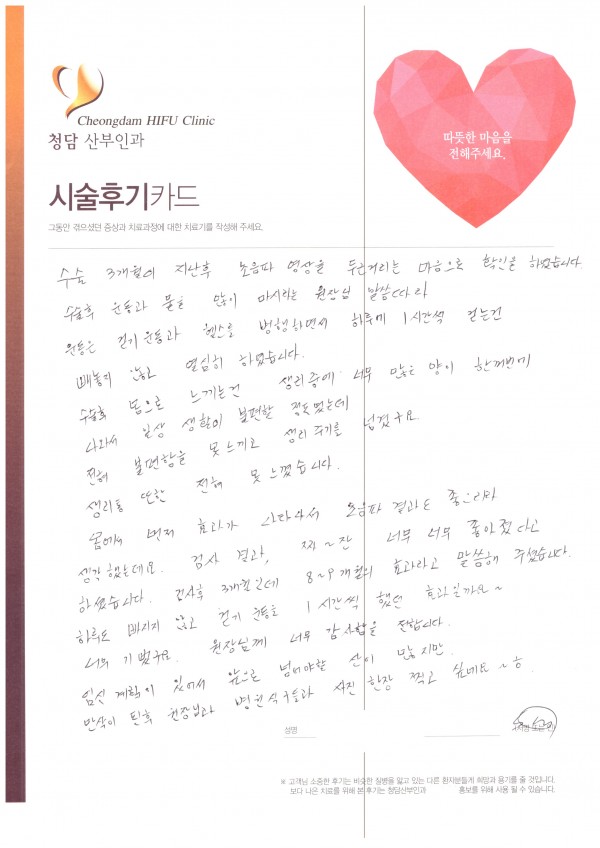 Cheongdam HIFU Clinic
청담 산부인과
따뜻한 마음을
전해주세요.
시술후기카드
그동안 겪으셨던 증상과 치료과정에 대한 치료기를 작성해 주세요.
수술 3개월이 지난후 초음파 영상을 두근거리는 마음으로 확인을 하였습니다
수술후 운동과 물을 많이 마시라는 원장님 말씀따라
운동은 걷기운동과 헬스를 병행하면서 하루에 1시간씩 걷는건
빼놓지 않고 열심히 하였습니다.
수술후 몸으로 느끼는건 생리중에 너무 많은 양이 한꺼번에
나와서 일상 생활이 불편할 정도였는데
전혀 불편함을 못느끼고 생리주기를 넘겼구요
생리통 또한 전혀 못느꼈습니다.
몸에서 먼저 효과가 나타나서 초음파 결과도 좋으리라
생각했는데요. 검사 결과, 짜~잔 너무 너무 좋아졌다고
하셨습니다. 검사후 3개월인데 8~9개월의 효과라고 말씀해 주셨습니다.
하루도 빠지지 않고 걷기 운동을 1시간씩 했던 효과일까요~
너무 기뻤구요. 원장님께 너무 감사함을 전합니다.
임신 계획이 있어서 앞으로 넘어야할 산이 많지만.
만삭이 된후 원장님과 병원식구들과 사진 한장 찍고 싶네요~ㅎ
성명
※ 고객님 소중한 후기는 비슷한 질병을 앓고 있는 다른 환자분들게 희망과 용기를 줄 것입니다.
보다 나은 치료를 위해 본 후기는 청담산부인과 홍보를 위해 사용 될 수 있습니다.